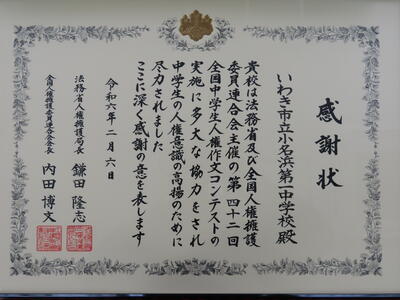 感謝状
いわき市立小名浜第一中学校殿
貴校は法務省及び全国人権擁護
委員連合会主催の第四十二回
全国中学生人権作文コンテストの
実施に多大な協力をされ
中学生の人権意識の高揚のために
尽力されました
ここに深く感謝の意を表します
令和六年二月六日
法務省人権擁護局長 鎌田隆志
全国人権擁護委員連合会会長 内田博文